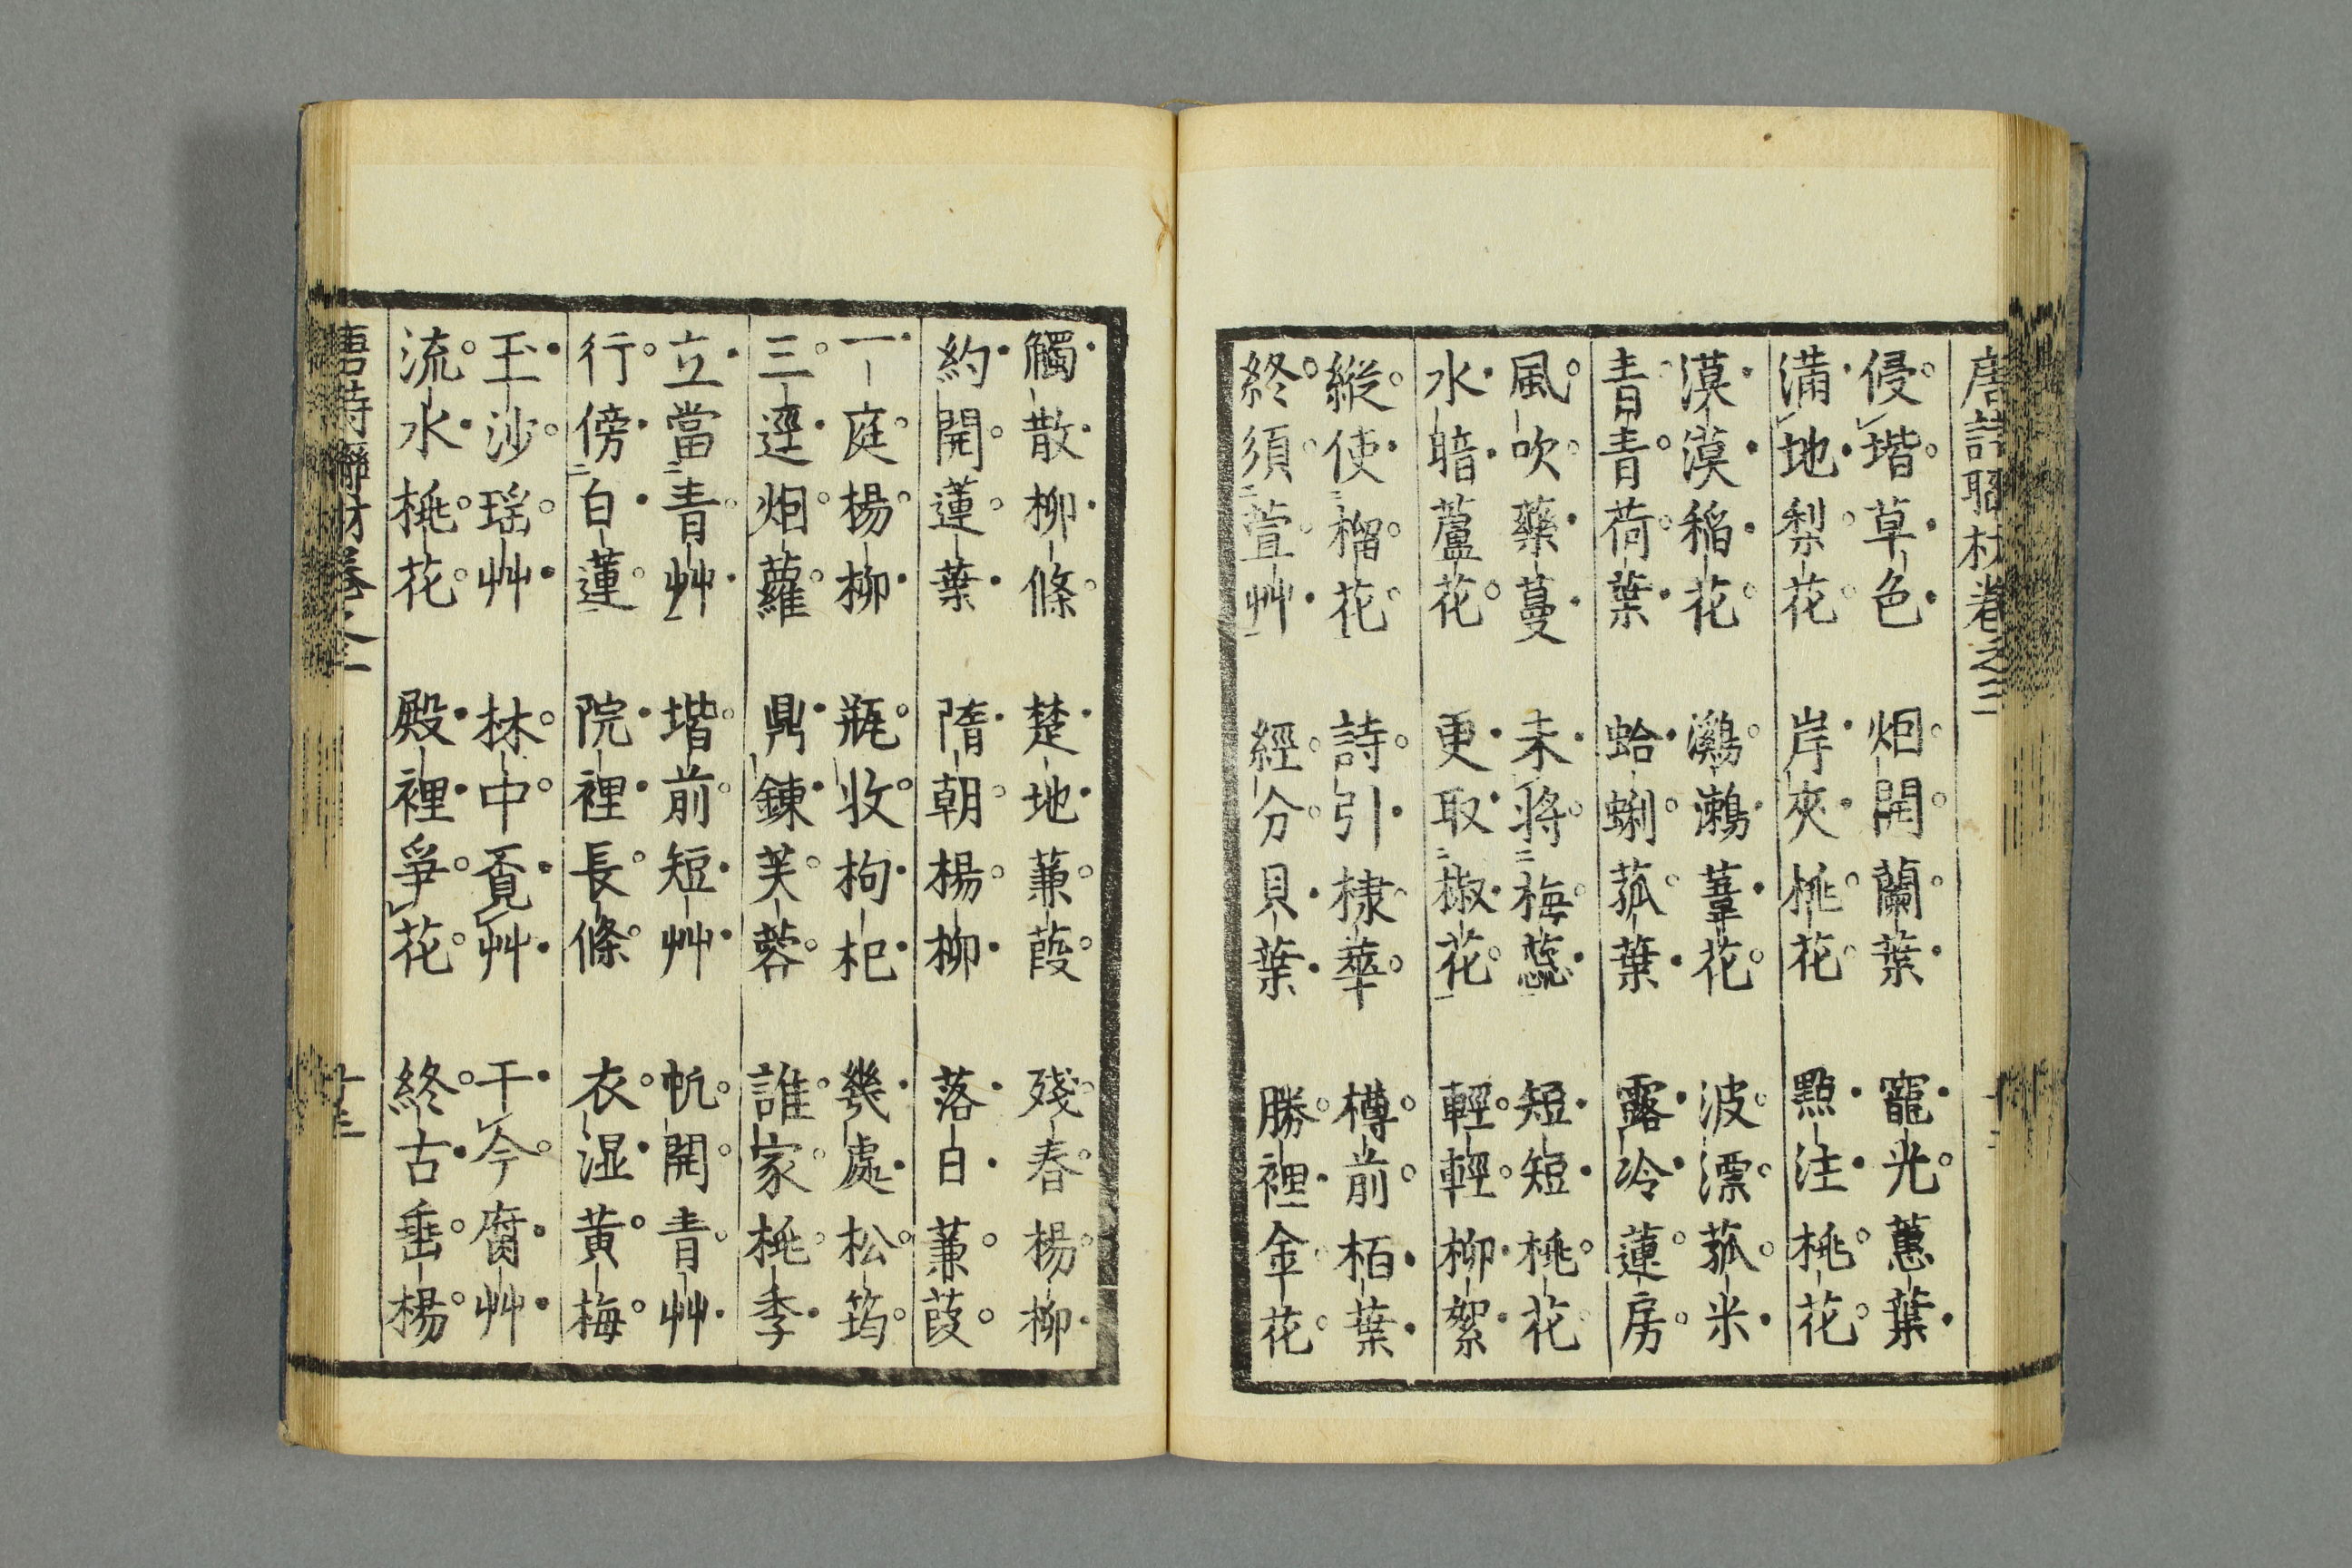 唐詩聯材卷之二
侵堦草色 烟開蘭葉 竈光蕙葉
滿地梨花 岸夾桃花 點注桃花
漠漠稲花 鸂鷘葦花 波漂菰米
青青荷葉 蛤蜊菰葉 露冷蓮房
風吹藥蔓 未將梅蕊 短短桃花
水暗蘆花 更取椒花 輕輕柳絮
縱使榴花 詩引棣華 樽前栢葉
終須萱艸 經分貝葉 勝裡金花
觸散柳條 楚地蒹葭 殘春楊柳
約開蓮葉 隋朝楊柳 落日蒹葭
一庭楊柳 瓶收枸杞 幾處松筠
三逕烟蘿 鼎鍊芙蓉 誰家桃李
立當青艸 堦前短艸 帆開青艸
行傍白蓮 院裡長條 衣湿黄梅
玉沙瑶艸 林中覔艸 干今腐艸
流水桃花 殿裡爭花 終古垂楊
唐詩聯材卷之二